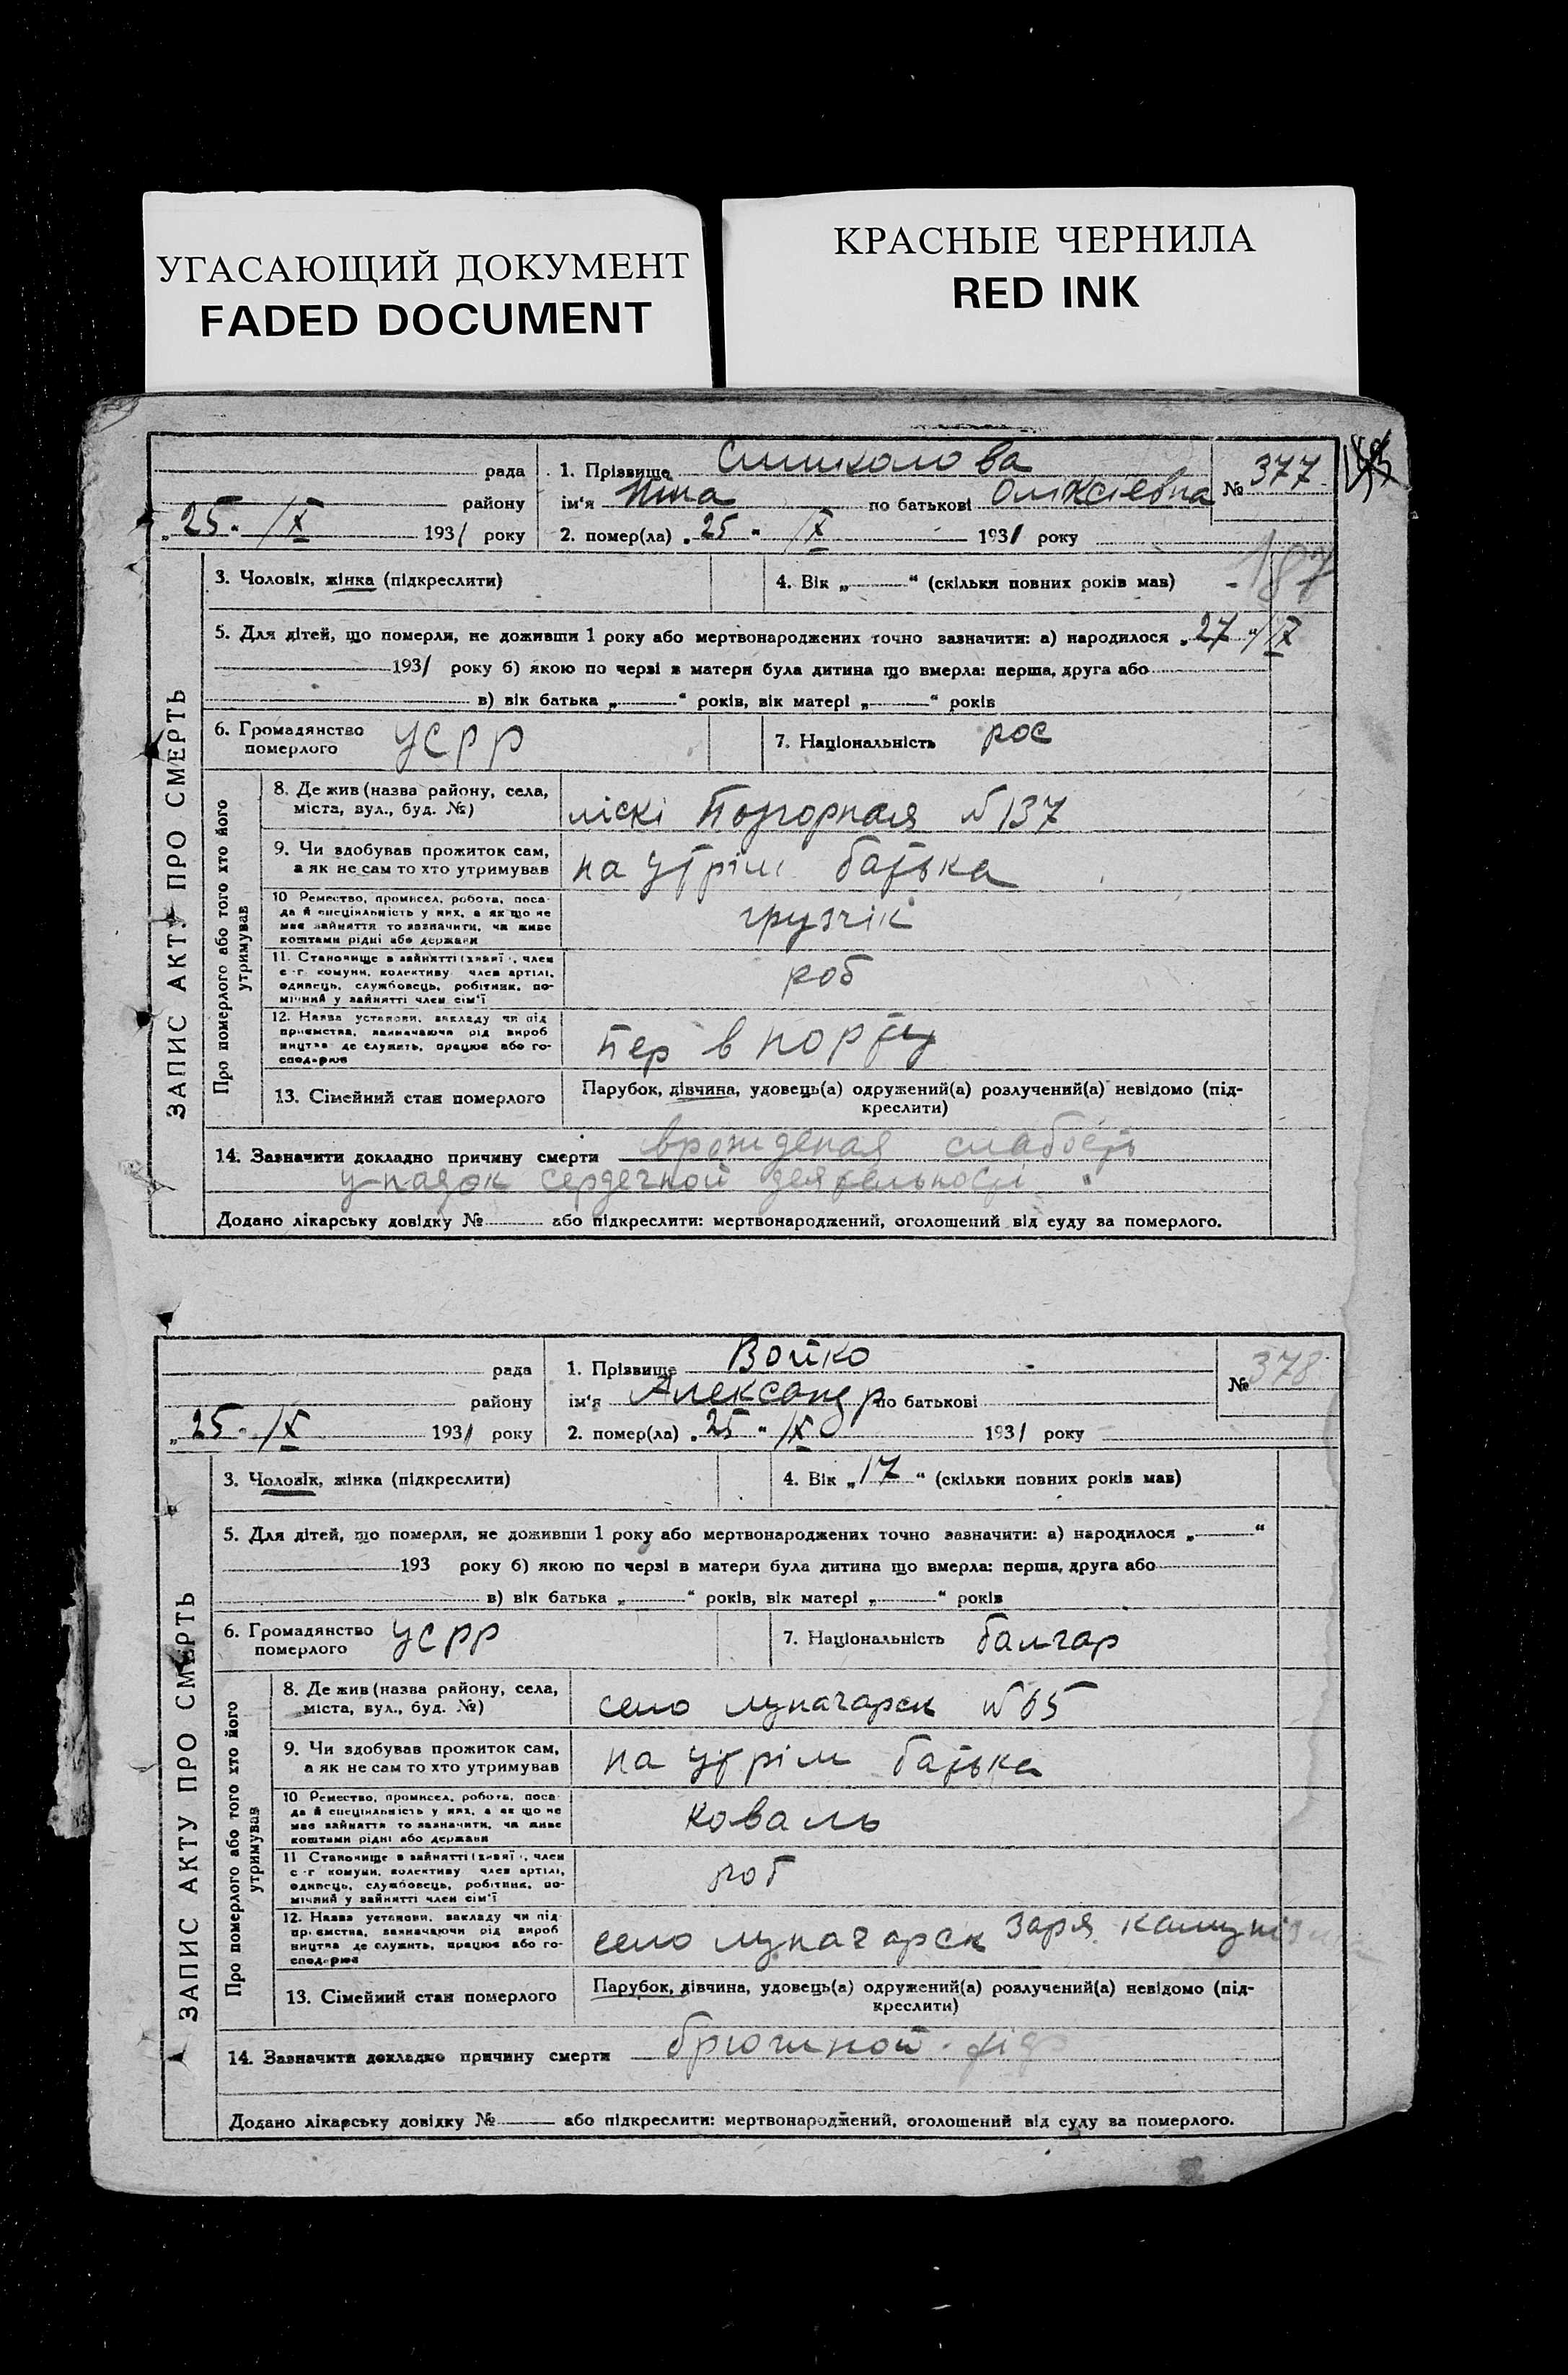 УГАСАЮЩИЙ ДОКУМЕНТ
FADED DOCUMENT
КРАСНЫЕ ЧЕРНИЛА
RED INK
ЗАПИС АКТУ ПРО СМЕРТЬ
рада
району
„25“ IX 1931 року
1. Прізвище
ім'я Ніна по батькові Олiксіевна
2. помер(ла) „25“ IX 1931 року
№ 377
187
3. Чоловік, жінка (підкреслити)
4. Вік „ “ (скільки повних років мав)
5. Для дітей, що померли, не доживши 1 року або мертвонароджених точно зазначити: а) народилося „27“
1931 року б) якою по черзі в матери була дитина що вмерла: перша, друга або
в) вік батька „ “ років, вік матері „ “ років
6. Громадянство
померлого УСРР
7. Національність рос
Про померлого або того хто його
утримував
8. Де жив (назва району, села,
міста, вул., буд. №) ліскі Нагорная №137
9. Чи здобував прожиток сам,
а як не сам то хто утримував на утрім батька
10 Ремество, промисел, робота, поса-
да й спеціяльність у них, а як що не
має зайняття то зазначити, чи живе
коштами рідні або держави грузчік
11. Становище в зайнятті (хазяї, член
с-г комуни, колективу член артілі,
одинець, службовець, робітник, по-
мічний у зайнятті член сім'ї роб
12. Назва установи, закладу чи під
приємства, зазначаючи рід вироб
ництва де служить, працює або го-
сподарює в порту
13. Сімейний стан померлого
Парубок, дівчина, удовець(а) одружений(а) розлучений(а) невідомо (під-
креслити)
14. Зазначити докладно причину смерти врожденая слабость
упадок сердечной деятельности
Додано лікарську довідку № або підкреслити: мертвонароджений, оголошений від суду за померлого.
ЗАПИС АКТУ ПРО СМЕРТЬ
рада
району
„25“ IX 1931 року
1. Прізвище Войко
ім'я Александр по батькові
2. помер(ла) „25“ IX 1931 року
№ 378
3. Чоловік, жінка (підкреслити)
4. Вік „17“ (скільки повних років мав)
5. Для дітей, що померли, не доживши 1 року або мертвонароджених точно зазначити: а) народилося „ “
193 року б) якою по черзі в матери була дитина що вмерла: перша, друга або
в) вік батька „ “ років, вік матері „ “ років
6. Громадянство
померлого УСРР
7. Національність балгар
Про померлого або того хто його
утримував
8. Де жив (назва району, села,
міста, вул., буд. №) село луначарск №65
9. Чи здобував прожиток сам,
а як не сам то хто утримував на утрім батька
10 Ремество, промисел, робота, поса-
да й спеціяльність у них, а як що не
має зайняття то зазначити, чи живе
коштами рідні або держави коваль
11 Становище в зайнятті (хазяї, член
с-г комуни, колективу член артілі,
одинець, службовець, робітник, по-
мічний у зайнятті член сім'ї роб
12. Назва установи, закладу чи під
приємства, зазначаючи рід вироб
ництва де служить, працює або го-
сподарює село луначарск Заря
13. Сімейний стан померлого
Парубок, дівчина, удовець(а) одружений(а) розлучений(а) невідомо (під-
креслити)
14. Зазначити докладно причину смерти брюшной тіф
Додано лікарську довідку № або підкреслити: мертвонароджений, оголошений від суду за померлого.